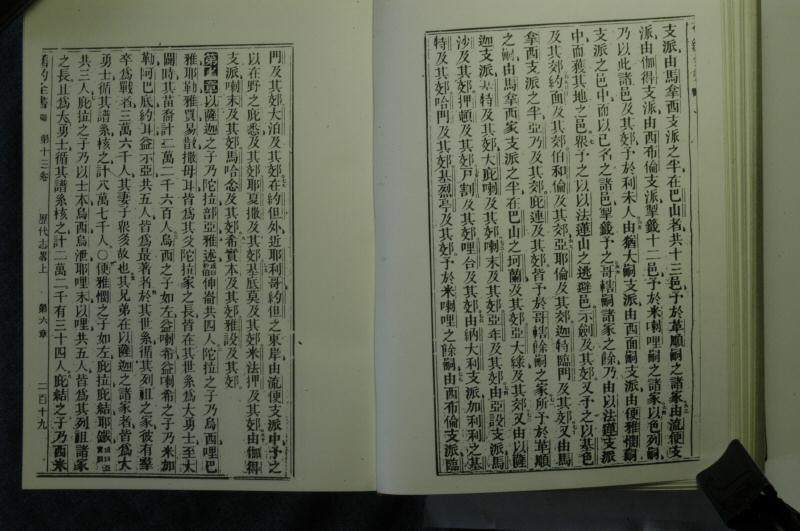 支派由馬拿西支派之半在巴山者共十三邑予於革順嗣之諸家由流便支
派由伽得支派由西布倫支派掣籤十二邑予於米喇哩嗣之諸家以色列嗣
乃以此諸邑及其郊予於利未人由猶大嗣支派由西面嗣支派由便雅憫嗣
支派之邑中而以已名之諸邑掣籤予之哥轄嗣諸家之餘乃由以法蓮支派
中而獲其地之邑眾予之以以法蓮山之逃避邑示劍及其郊又予之以基色
及其郊約面及其郊伯和倫及其郊亞耶倫及其郊迦特臨門及其郊又由馬
拿西支派之半亞乃及其郊庇連及其郊皆予於哥轄餘嗣之家所予於革順
之嗣由馬拿西家支派之半在巴山之坷蘭及其郊亞大綠及其郊又由以薩
迦支派基特及其郊大庇喇及其郊喇末及其郊亞年及其郊由亞設支派馬
沙及其郊押頓及其郊戶割及其郊哩合及其郊由納大利支派加利利之基
特及其郊哈門及其郊基烈亭及其郊予於米喇哩之餘嗣由西布倫支派臨
門及其郊大泊及其郊在約但外近耶利哥約但之東岸由流便支派中予之
以在野之庇悉及其郊耶夏撒及其郊基底莫及其郊米法押及其郊由伽得
支派喇末及其郊馬哈念及其郊希實本及其郊雅設及其郊
第七章以薩迦之子乃陀拉部亞雅述伸崙共四人陀拉之子乃烏西哩巴
雅耶勒雅買易散撒母耳皆爲其父陀拉家之長皆在其世系爲大勇士至大
闢時其苗裔計二萬二千六百人烏西之子如左益喇希益喇希之子乃米加
勒阿巴底約耳益示亞共五人皆爲最著者於其世系循其列祖之家彼有羣
卒爲戰者三萬六千人其妻子眾多故也其兄弟在以薩迦之諸家者皆爲大
勇士循其譜系核之計八萬七千人○便雅憫之子如左庇拉庇結耶鐵
共三人庇拉之子乃以士本烏西烏泄耶哩末以哩共五人皆爲其列祖諸家
之長且爲大勇士循其譜系核之計二萬二千有三十四人庇結之子乃西米
舊約全書 第十三卷 歷代志畧上 第六章 二百十九